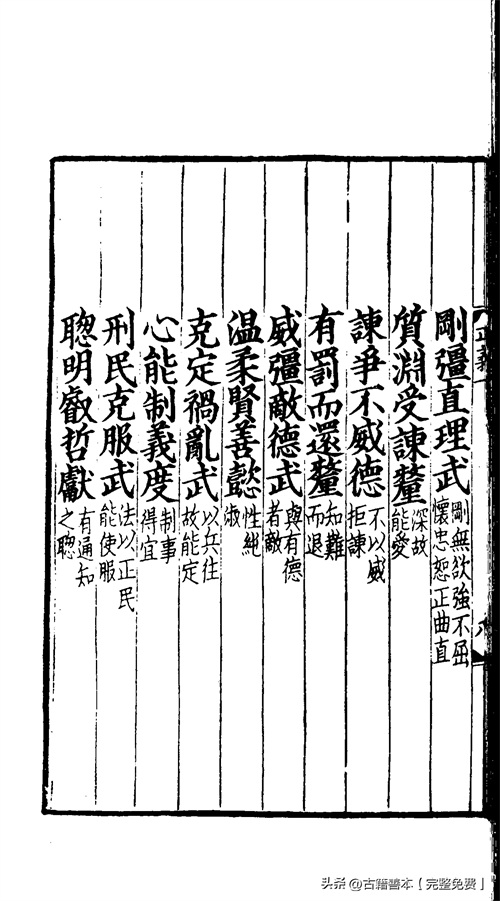 正義一
八
剛彊直理武 剛無欲強不屈懷忠恕正曲直
質淵受諫釐 深故能受
諫爭不威德 不以威拒諫
有罰而還釐 知難而退
威彊敵德武 與有德者敵
温柔賢善懿 性純淑
克定禍亂武 以兵往故能定
心能制義度 制事得宜
刑民克服武 法以正民能使服
聰明叡哲獻 有通知之聰
头条 @古籍善本【完整免费】